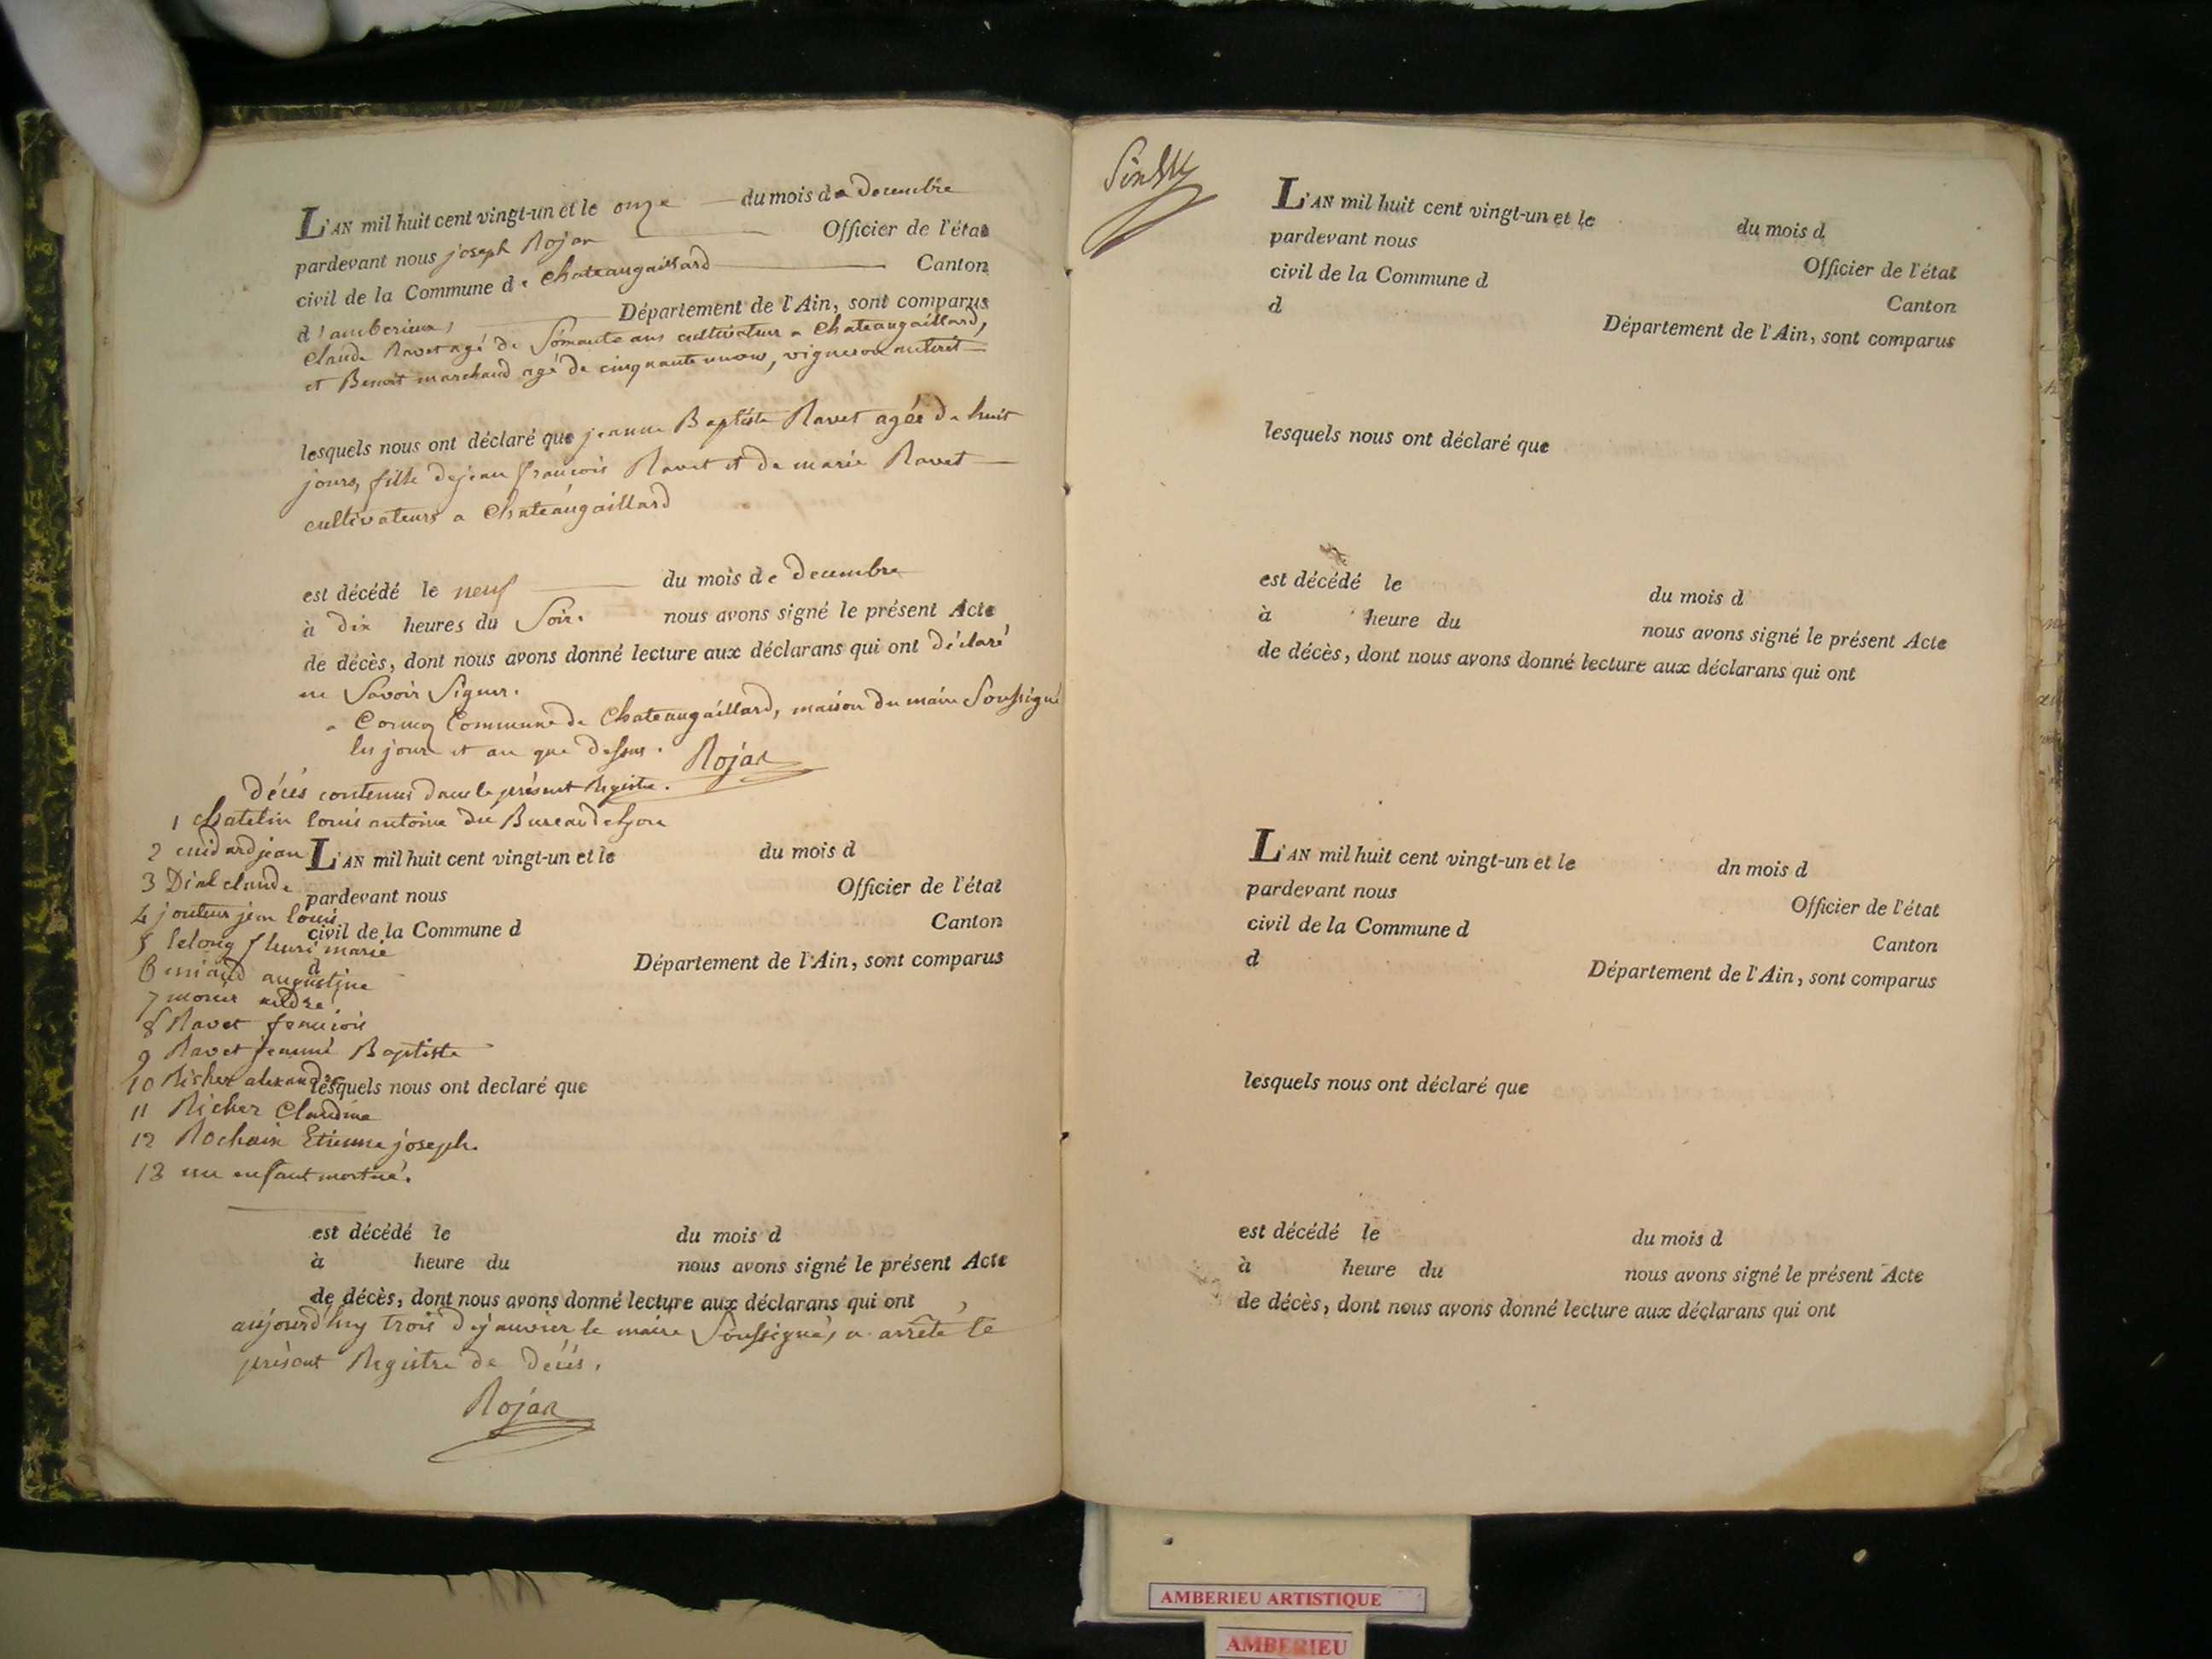 L'AN mil huit cent vingt-un et le onze du mois de decembre
pardevant nous joseph Rojar Officier de l'état
civil de la Commune de Chateaugaillard Canton
d'amberieux, Département de l'Ain, sont comparus
Claude Ravet agé de Soixante ans cultivateur a Chateaugaillard,
et Benoit marchand agé de cinquante neuf, vigneron
lesquels nous ont déclaré que jeanne Baptiste Ravet agée de huit
jours, fille de jean françois Ravet et de marie Ravet
cultivateurs a Chateaugaillard
est décédé le neuf du mois de decembre
à dix heures du Soir. nous avons signé le présent Acte
de décès, dont nous avons donné lecture aux déclarans qui ont déclaré
ne Savoir Signer.
a Cormoz Commune de Chateaugaillard, maison du maire Soussigné
les jour et an que dessus. Rojar
décès contenus dans le présent Registre.
1 chatelin louis antoine du Bureau de lyon
2 cuidard jean
3 Dial claude
4 jouteur jean louis
5 lelong fleuri marie
6 miaud augustine
7 morier andré
8 Ravet francois
9 Ravet jeanne Baptiste
10 Richer alexandre
11 Richer Claudine
12 Rochaix Etienne joseph.
13 un enfant mort né.
L'AN mil huit cent vingt-un et le du mois d
pardevant nous Officier de l'état
civil de la Commune d Canton
d Département de l'Ain, sont comparus
lesquels nous ont declaré que
est décédé le du mois d
à heure du nous avons signé le présent Acte
de décès, dont nous avons donné lecture aux déclarans qui ont
aujourd'huy trois de janvier le maire Soussigné, a arrêté le
présent Registre de décès.
Rojar
L'AN mil huit cent vingt-un et le du mois d
pardevant nous Officier de l'état
civil de la Commune d Canton
d Département de l'Ain, sont comparus
lesquels nous ont déclaré que
est décédé le du mois d
à heure du nous avons signé le présent Acte
de décès, dont nous avons donné lecture aux déclarans qui ont
L'AN mil huit cent vingt-un et le dn mois d
pardevant nous Officier de l'état
civil de la Commune d Canton
d Département de l'Ain, sont comparus
lesquels nous ont déclaré que
est décédé le du mois d
à heure du nous avons signé le présent Acte
de décès, dont nous avons donné lecture aux déclarans qui ont
AMBERIEU ARTISTIQUE
AMBERIEU